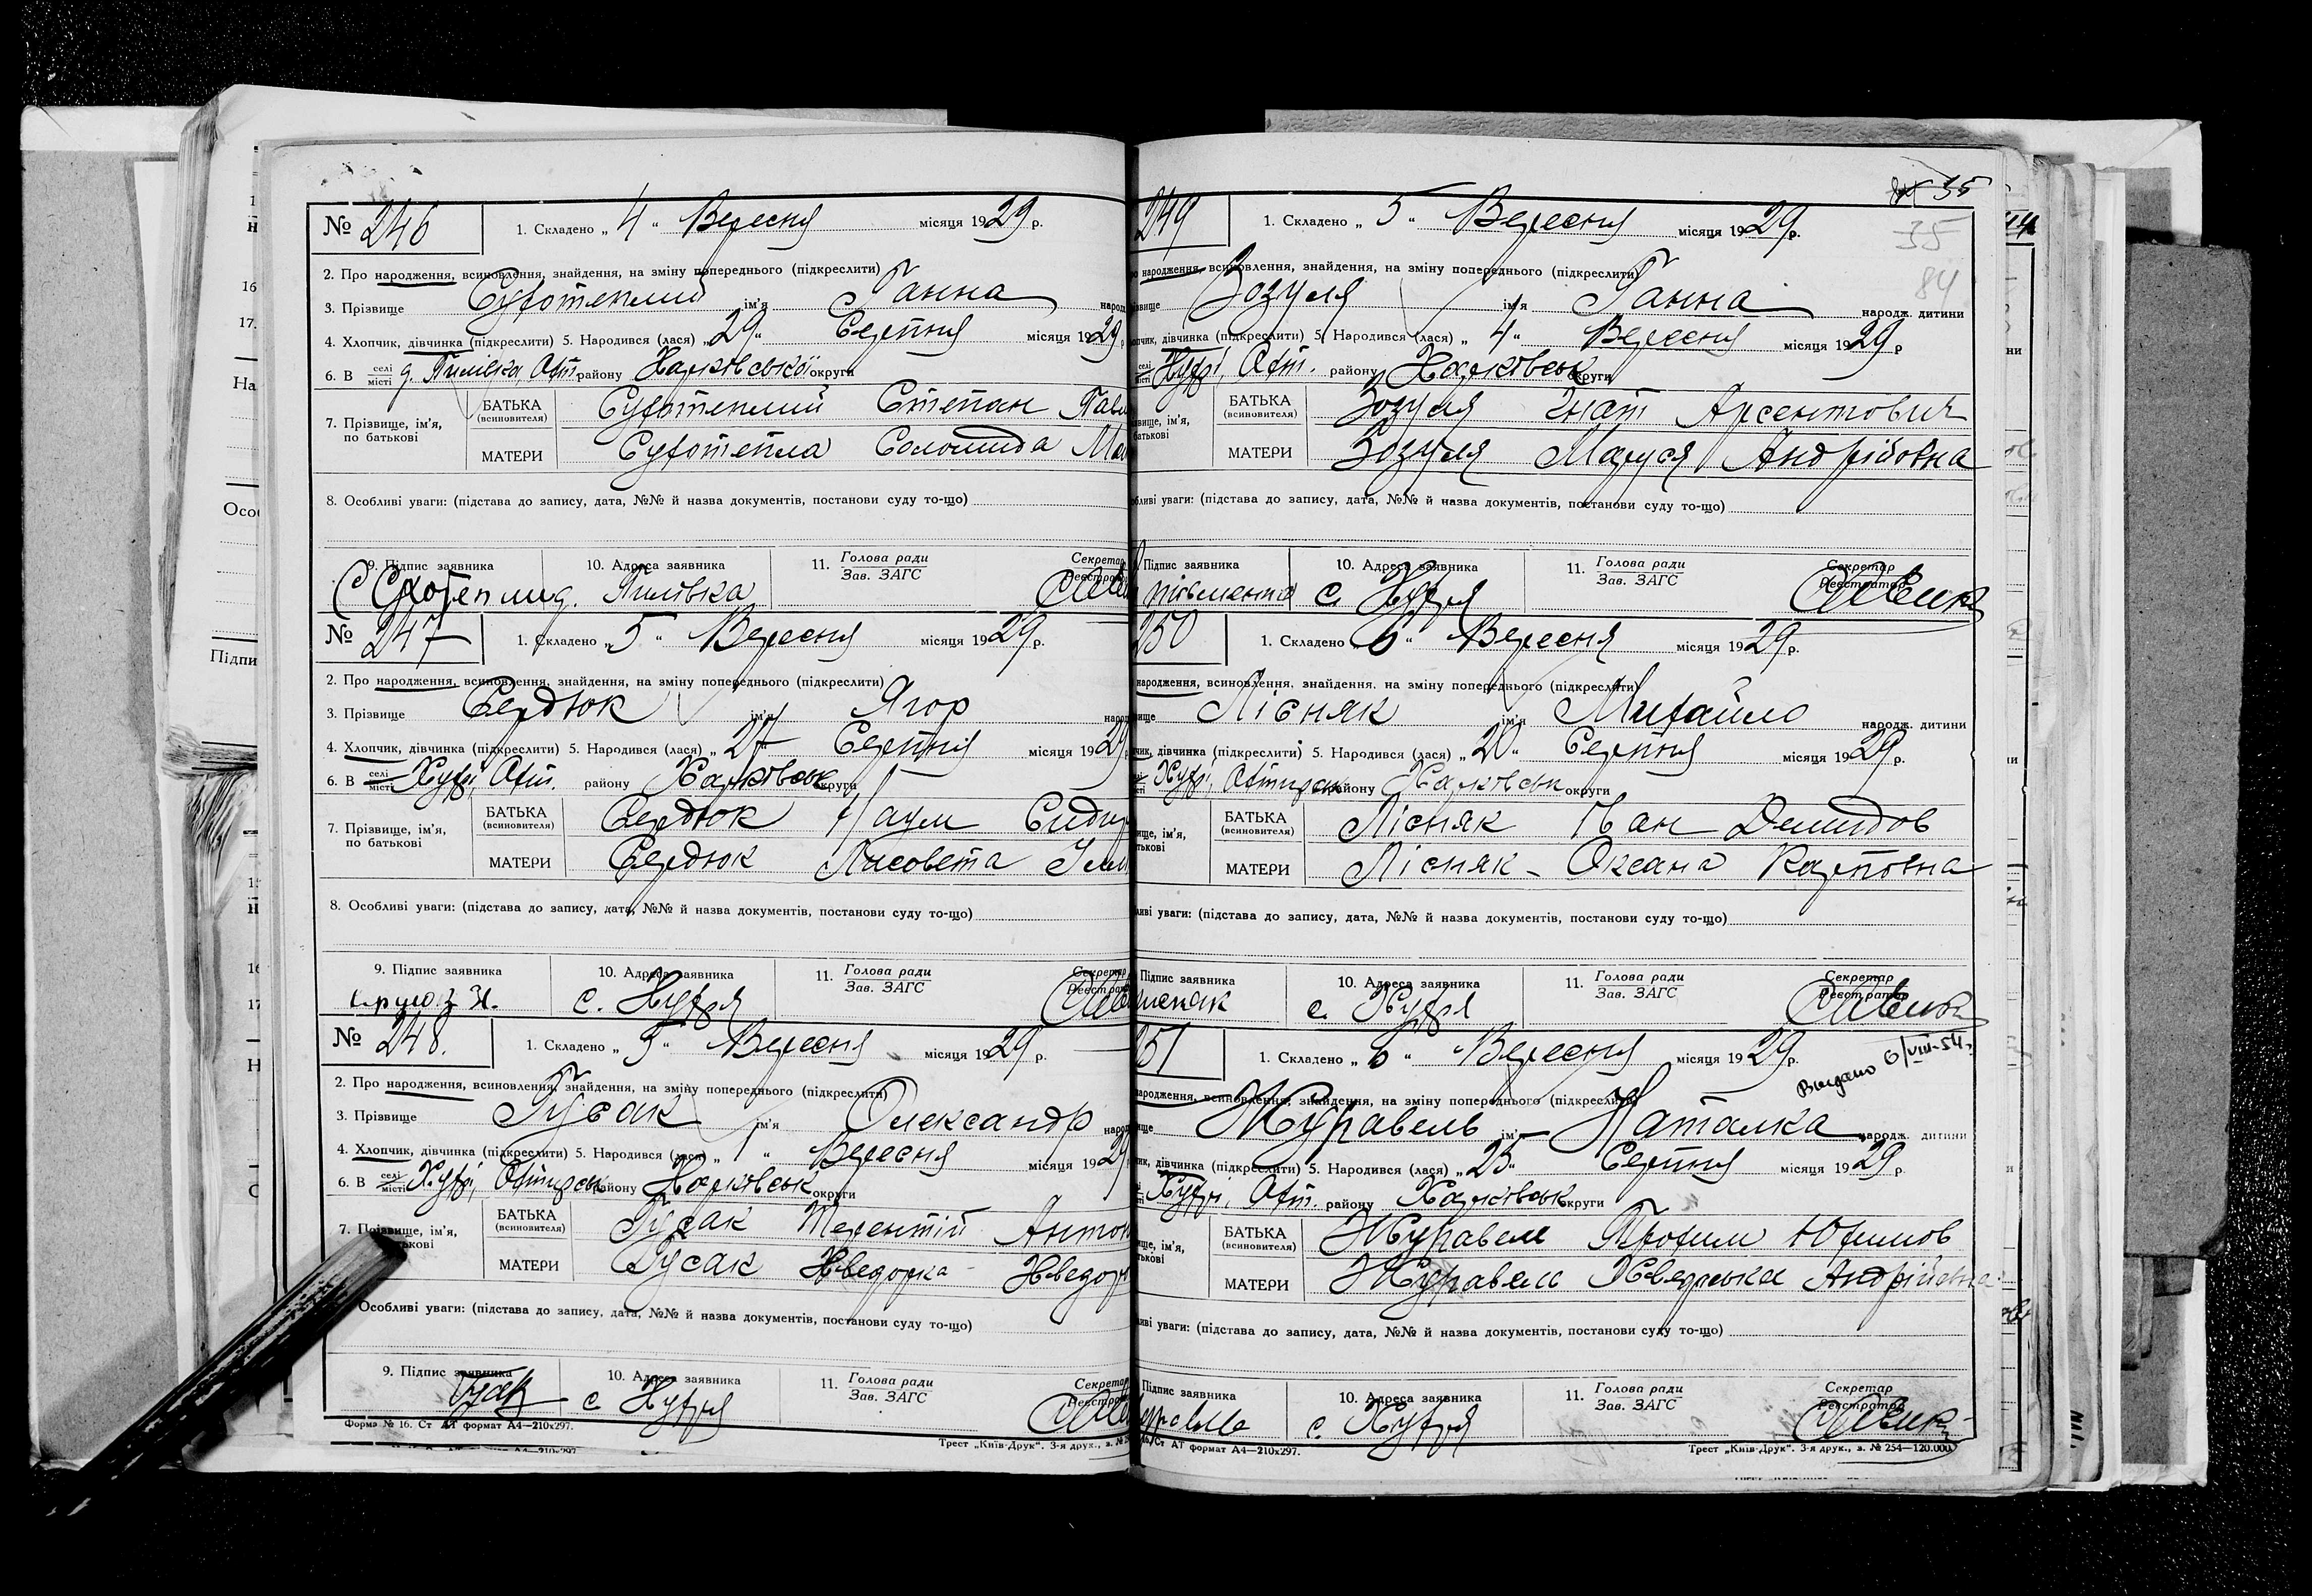 № 246 1. Складено „ 4 " Вересня місяця 1929 р.
2. Про народження, всиновлення, знайдення, на зміну попереднього (підкреслити)
3. Прізвище Сухотеплий ім'я Ганна народ
4. Хлопчик, дівчинка (підкреслити) 5. Народився (лася) „ 29 " Серпня місяця 1929 р
6. В селі місті д. Пилівка, Охт. району Харківської округи
7. Прізвище, ім'я, по батькові
БАТЬКА (всиновителя) Сухотеплий Степан Павл
МАТЕРИ Сухотепла Соломида Ма
8. Особливі уваги: (підстава до запису, дата, №№ й назва документів, постанови суду то-що)
9. Підпис заявника 10. Адреса заявника 11. Голова ради Зав. ЗАГС Секретар Реєстратор
С Сухотеплий д. Пилівка
№ 247 1. Складено „ 5 " Вересня місяця 1929 р.
2. Про народження, всиновлення, знайдення, на зміну попереднього (підкреслити)
3. Прізвище Сердюк ім'я Ягор народ
4. Хлопчик, дівчинка (підкреслити) 5. Народився (лася) „ 27 " Серпня місяця 1929
6. В селі місті Хухрі, Охт. району Харківськ округи
7. Прізвище, ім'я, по батькові
БАТЬКА (всиновителя) Сердюк Наум Сидор
МАТЕРИ Сердюк Лисовета
8. Особливі уваги: (підстава до запису, дата, №№ й назва документів, постанови суду то-що)
9. Підпис заявника 10. Адреса заявника 11. Голова ради Зав. ЗАГС Секретар Реєстрат
с. Хухря
№ 248. 1. Складено „ 5 " Вересня місяця 1929 р.
2. Про народження, всиновлення, знайдення, на зміну попереднього (підкреслити)
3. Прізвище Гусак ім'я Олександр народ
4. Хлопчик, дівчинка (підкреслити) 5. Народився (лася) „ 1 " Вересня місяця 1929
6. В селі місті Хухрі, Охтирськ району Харківськ округи
7. Прізвище, ім'я, по батькові
БАТЬКА (всиновителя) Гусак Терентій Антон
МАТЕРИ Гусак Хведорка Хведор
Особливі уваги: (підстава до запису, дата, №№ й назва документів, постанови суду то-що)
9. Підпис заявника 10. Адреса заявника 11. Голова ради Зав. ЗАГС Секретар Реєстратор
с Хухря
Форма № 16. Ст АТ формат А4—210х297.
Трест „Київ-Друк". 3-я друк., з. №
35
35
84
249 1. Складено „ 5 " Вересня місяця 1929 р.
народження, всиновлення, знайдення, на зміну попереднього (підкреслити)
Зозуля ім'я Ганна народж. дитини
дівчинка (підкреслити) 5. Народився (лася) „ 4 " Вересня місяця 1929 р
Хухрі, Охт. району Харківськ округи
БАТЬКА (всиновителя) Зозуля Гнат Арсентович
МАТЕРИ Зозуля Маруся Андрійовна
уваги: (підстава до запису, дата, №№ й назва документів, постанови суду то-що)
Підпис заявника 10. Адреса заявника 11. Голова ради Зав. ЗАГС Секретар Реєстратор
с. Хухря
250 1. Складено „ 6 " Вересня місяця 1929 р.
народження, всиновлення, знайдення, на зміну попереднього (підкреслити)
Лісняк ім'я Михайло народж. дитини
дівчинка (підкреслити) 5. Народився (лася) „ 20 " Серпня місяця 1929 р.
Хухрі, Охтирськ району Харківськ округи
БАТЬКА (всиновителя) Лісняк Іван Демидов
МАТЕРИ Лісняк - Оксана Карповна
уваги: (підстава до запису, дата, №№ й назва документів, постанови суду то-що)
Підпис заявника 10. Адреса заявника 11. Голова ради Зав. ЗАГС Секретар Реєстратор
с. Хухря
251 1. Складено „ 6 " Вересня місяця 1929 р.
Видано 6/VIII-54.
народження, всиновлення, знайдення, на зміну попереднього (підкреслити)
Журавель ім'я Наталка народж. дитини
дівчинка (підкреслити) 5. Народився (лася) „ 25 " Серпня місяця 1929 р.
Хухрі, Охт. району Харківськ округи
БАТЬКА (всиновителя) Журавель Трохим Юхимов
МАТЕРИ Журавель Хведоська Андрійовна
уваги: (підстава до запису, дата, №№ й назва документів, постанови суду то-що)
Підпис заявника 10. Адреса заявника 11. Голова ради Зав. ЗАГС Секретар Реєстратор
с. Хухря
Ст АТ формат А4—210х297.
Трест „Київ-Друк". 3-я друк., з. № 254—120.000